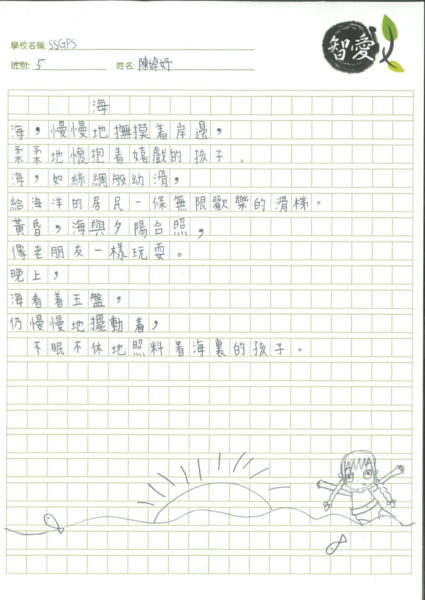 智愛
學校名稱: SSGPS
班別: 5 姓名: 陳婥妤
海
海，慢慢地撫摸着岸邊，
柔柔地懷抱着嬉戲的孩子。
海，如絲綢般幼滑，
給海洋的居民一條無限歡樂的滑梯。
黃昏，海與夕陽合照，
像老朋友一樣玩耍。
晚上，
海看着玉盤，
仍慢慢地擺動着，
不眠不休地照料着海裏的孩子。